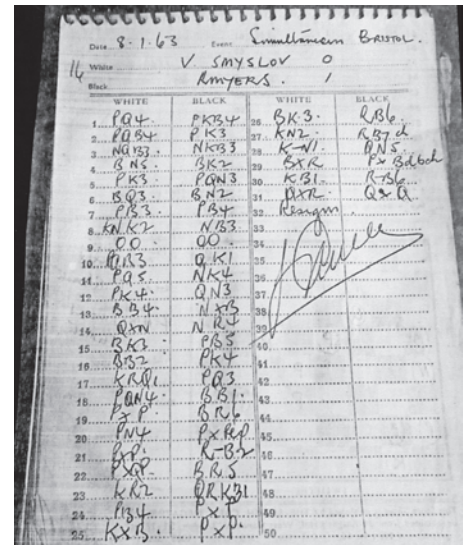 Date 8-1-63 Event Simultaneous BRISTOL.
White V. SMYSLOV 0
Black R MYERS. 1
WHITE BLACK WHITE BLACK
1 PQ4 PKB4 26 BK3. RB6
2 PQB4 PK3 27 KN2. RB7ch
3 NQB3 NKB3 28 K-N1. QN5.
4 BN5 BK2 29 BXR PxBdbch
5 PK3 PQN3 30 KB1. R-B6
6 BQ3 BN2 31 QXR QxQ
7 PB3 PB4 32 Resigns.
8 KNK2 NB3 33
9 OO OO. 34
10 QK1 35
11 PQ5 NK4 36
12 PK4. QN3 37
13 BB4 NXB 38
14 QXN NR4 39
15 BK3 PB5 40
16 BB2 PK4 41
17 KRQ1 PQ3 42
18 PQN4. BB1. 43
19 PxP. BR6 44
20 PN4 PxPep 45
21 PxP. R-B2 46
22 PXQP. BR5 47
23 KR2 QRKB1 48
24 PB4 PxP 49
25 KxB. PxP. 50